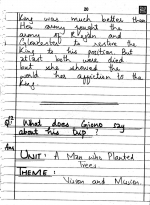 20
King was much better than
Her army fought the
army of Regan and
to restore the
King to his position. But
at last both were died
but she showed the
world her affection to the
King.
Q12 What does Giono say
about his Trip?
Ans
UNIT: A Man who Planted
Trees
THEME:
Vision and Mission